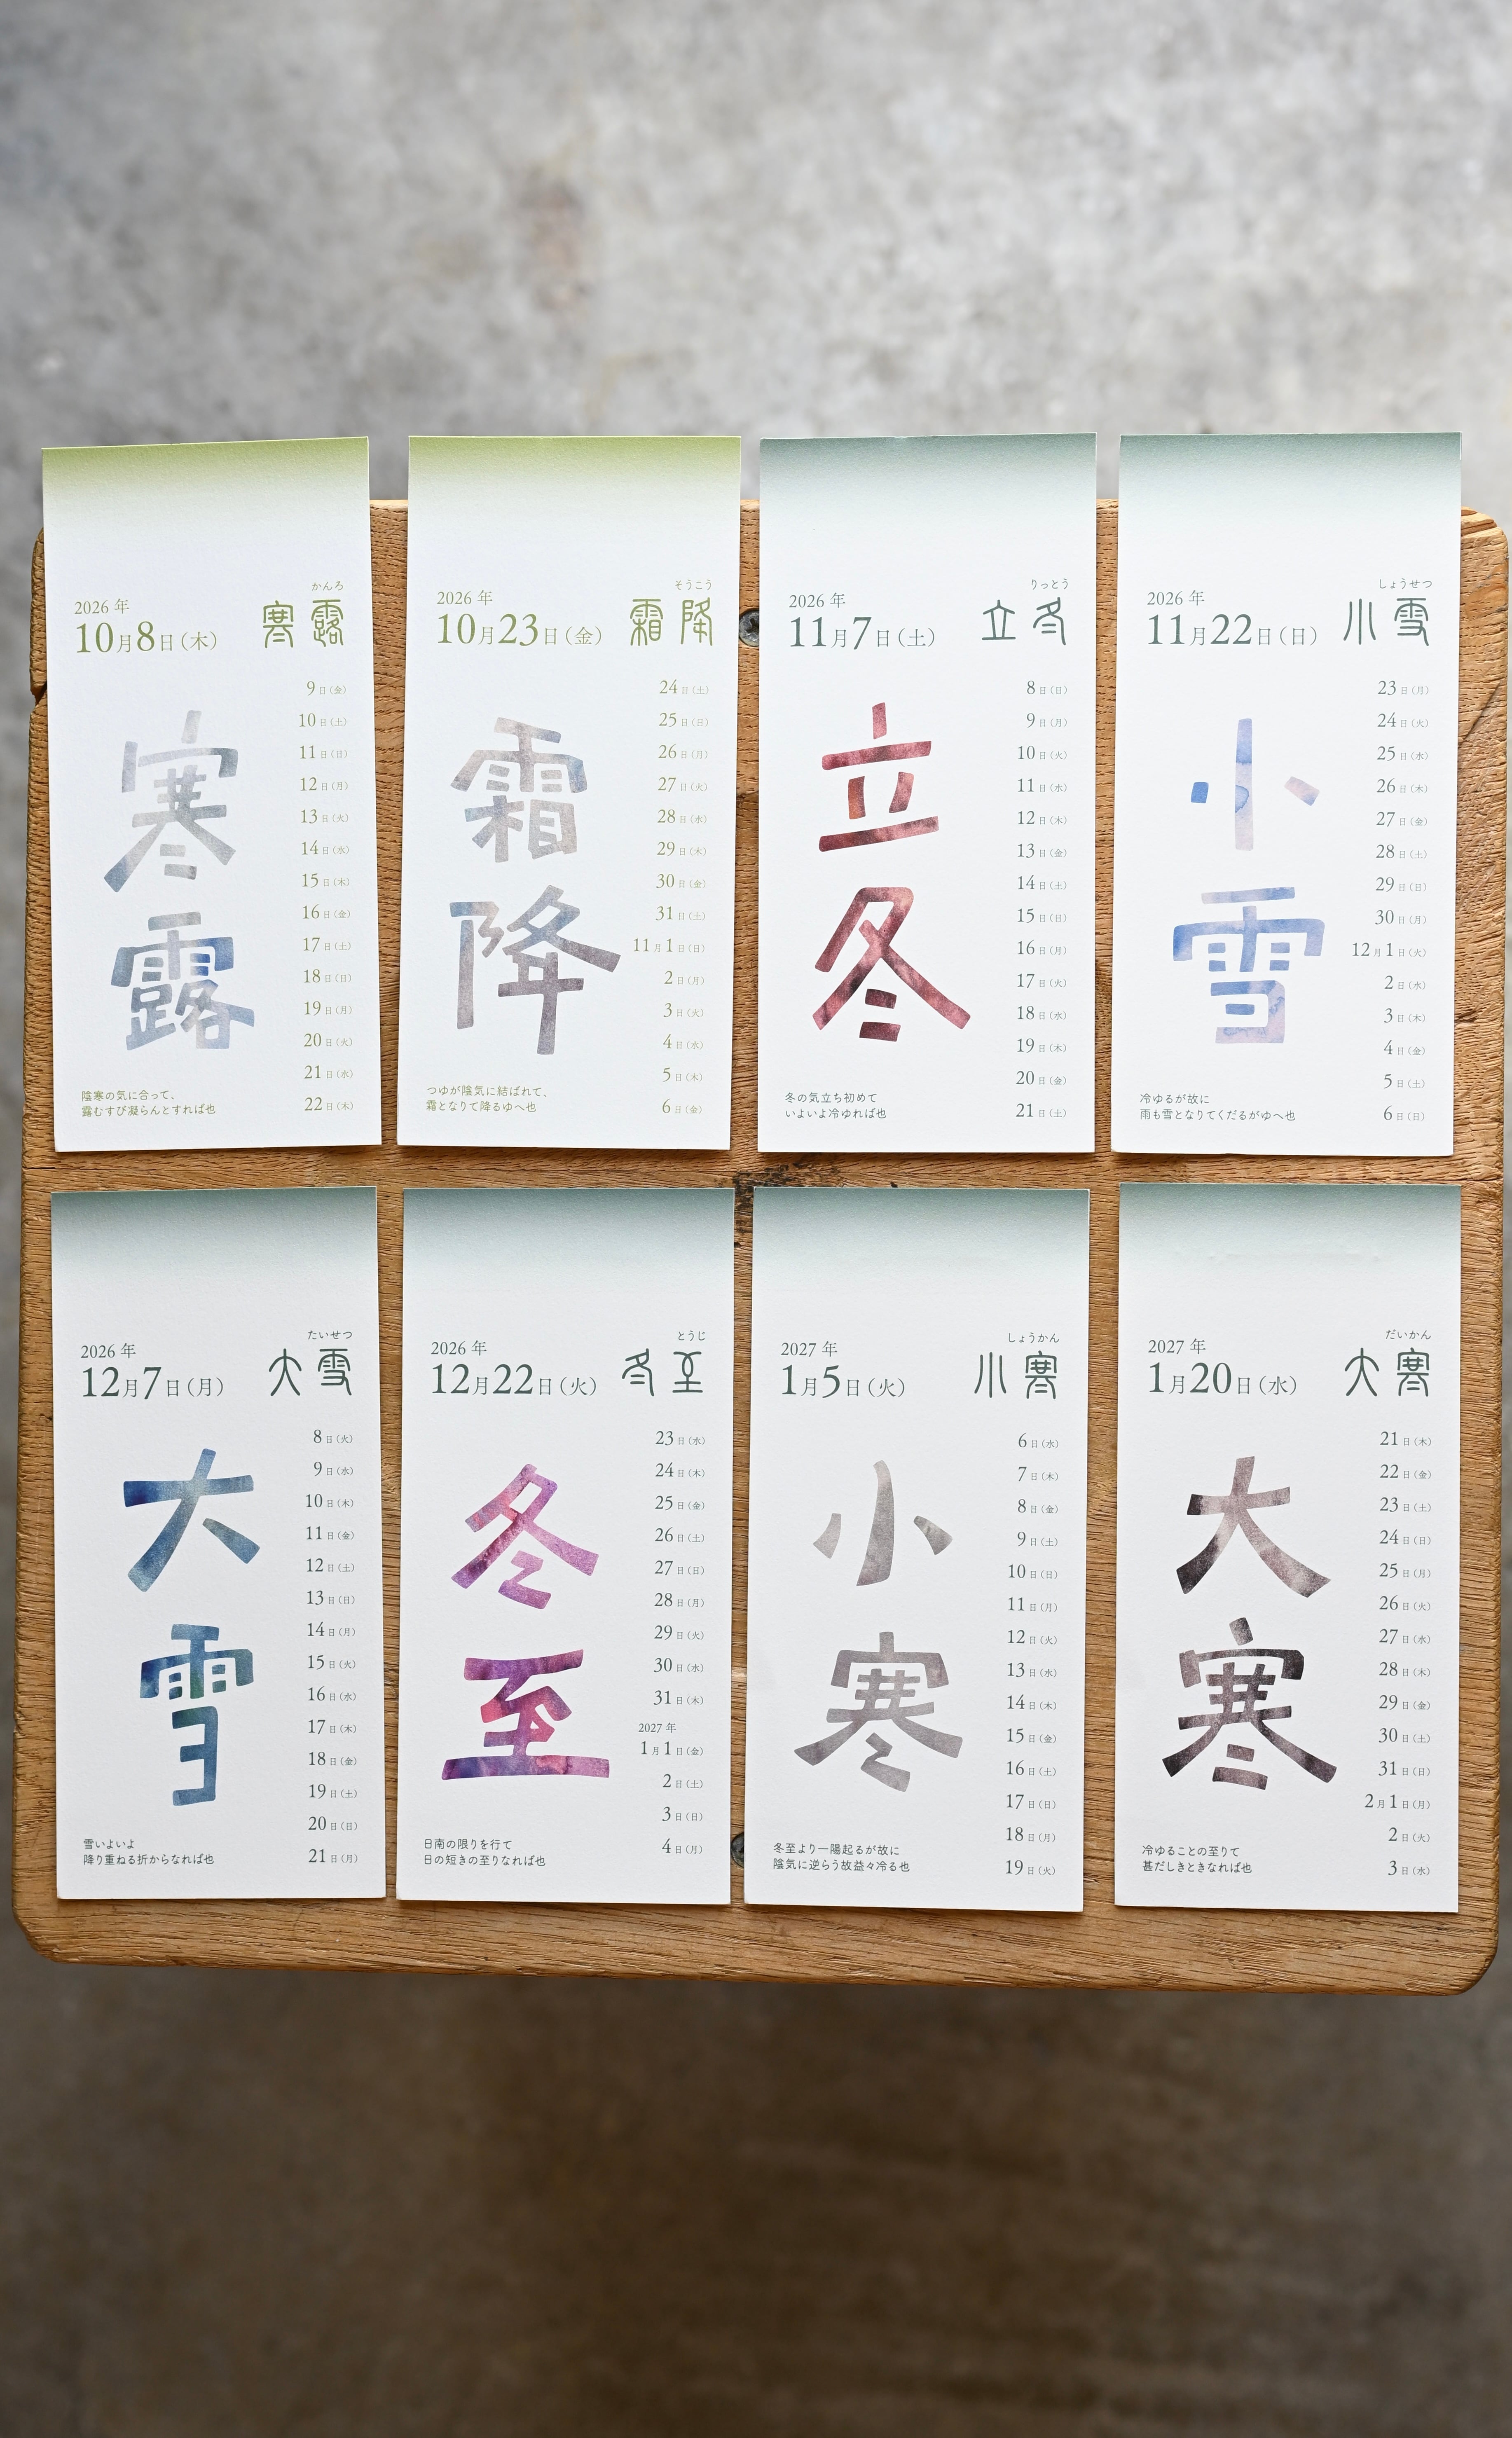 かんろ
2026 年
10月8日（木） 寒露
9日（金）
10日（土）
11日（日）
12日（月）
13日（火）
14日（水）
15日（木）
16日（金）
17日（土）
18日（日）
19日（月）
20日（火）
21日（水）
22日（木）
寒
露
陰寒の気に合って、
露むすび凝らんとすれば也
そうこう
2026 年
10月23日（金） 霜降
24日（土）
25日（日）
26日（月）
27日（火）
28日（水）
29日（木）
30日（金）
31日（土）
11月1日（日）
2日（月）
3日（火）
4日（水）
5日（木）
6日（金）
霜
降
つゆが陰気に結ばれて、
霜となりて降るゆへ也
りっとう
2026 年
11月7日（土） 立冬
8日（日）
9日（月）
10日（火）
11日（水）
12日（木）
13日（金）
14日（土）
15日（日）
16日（月）
17日（火）
18日（水）
19日（木）
20日（金）
21日（土）
立
冬
冬の気立ち初めて
いよいよ冷ゆれば也
しょうせつ
2026 年
11月22日（日） 小雪
23日（月）
24日（火）
25日（水）
26日（木）
27日（金）
28日（土）
29日（日）
30日（月）
12月1日（火）
2日（水）
3日（木）
4日（金）
5日（土）
6日（日）
小
雪
冷ゆるが故に
雨も雪となりてくだるがゆへ也
たいせつ
2026 年
12月7日（月） 大雪
8日（火）
9日（水）
10日（木）
11日（金）
12日（土）
13日（日）
14日（月）
15日（火）
16日（水）
17日（木）
18日（金）
19日（土）
20日（日）
21日（月）
大
雪
雪いよいよ
降り重ねる折からなれば也
とうじ
2026 年
12月22日（火） 冬至
23日（水）
24日（木）
25日（金）
26日（土）
27日（日）
28日（月）
29日（火）
30日（水）
31日（木）
2027 年
1月1日（金）
2日（土）
3日（日）
4日（月）
冬
至
日南の限りを行て
日の短きの至りなれば也
しょうかん
2027 年
1月5日（火） 小寒
6日（水）
7日（木）
8日（金）
9日（土）
10日（日）
11日（月）
12日（火）
13日（水）
14日（木）
15日（金）
16日（土）
17日（日）
18日（月）
19日（火）
小
寒
冬至より一陽起るが故に
陰気に逆らう故益々冷る也
だいかん
2027 年
1月20日（水） 大寒
21日（木）
22日（金）
23日（土）
24日（日）
25日（月）
26日（火）
27日（水）
28日（木）
29日（金）
30日（土）
31日（日）
2月1日（月）
2日（火）
3日（水）
大
寒
冷ゆることの至りて
甚だしきときなれば也